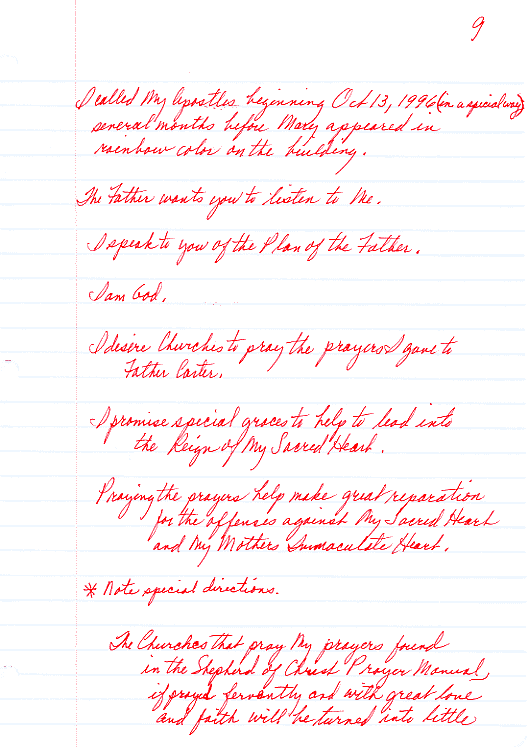 9
I called My Apostles beginning Oct 13, 1996 (in a special way)
several months before Mary appeared in
rainbow color on the building.
The Father wants you to listen to Me.
I speak to you of the Plan of the Father.
I am God.
I desire Churches to pray the prayers I gave to
Father Carter.
I promise special graces to help to lead into
the Reign of My Sacred Heart.
Praying the prayers help make great reparation
for the offenses against My Sacred Heart
and My Mothers Immaculate Heart.
* Note special directions.
The Churches that pray My prayers found
in the Shepherd of Christ Prayer Manual,
if prayed fervently and with great love
and faith will be turned into little